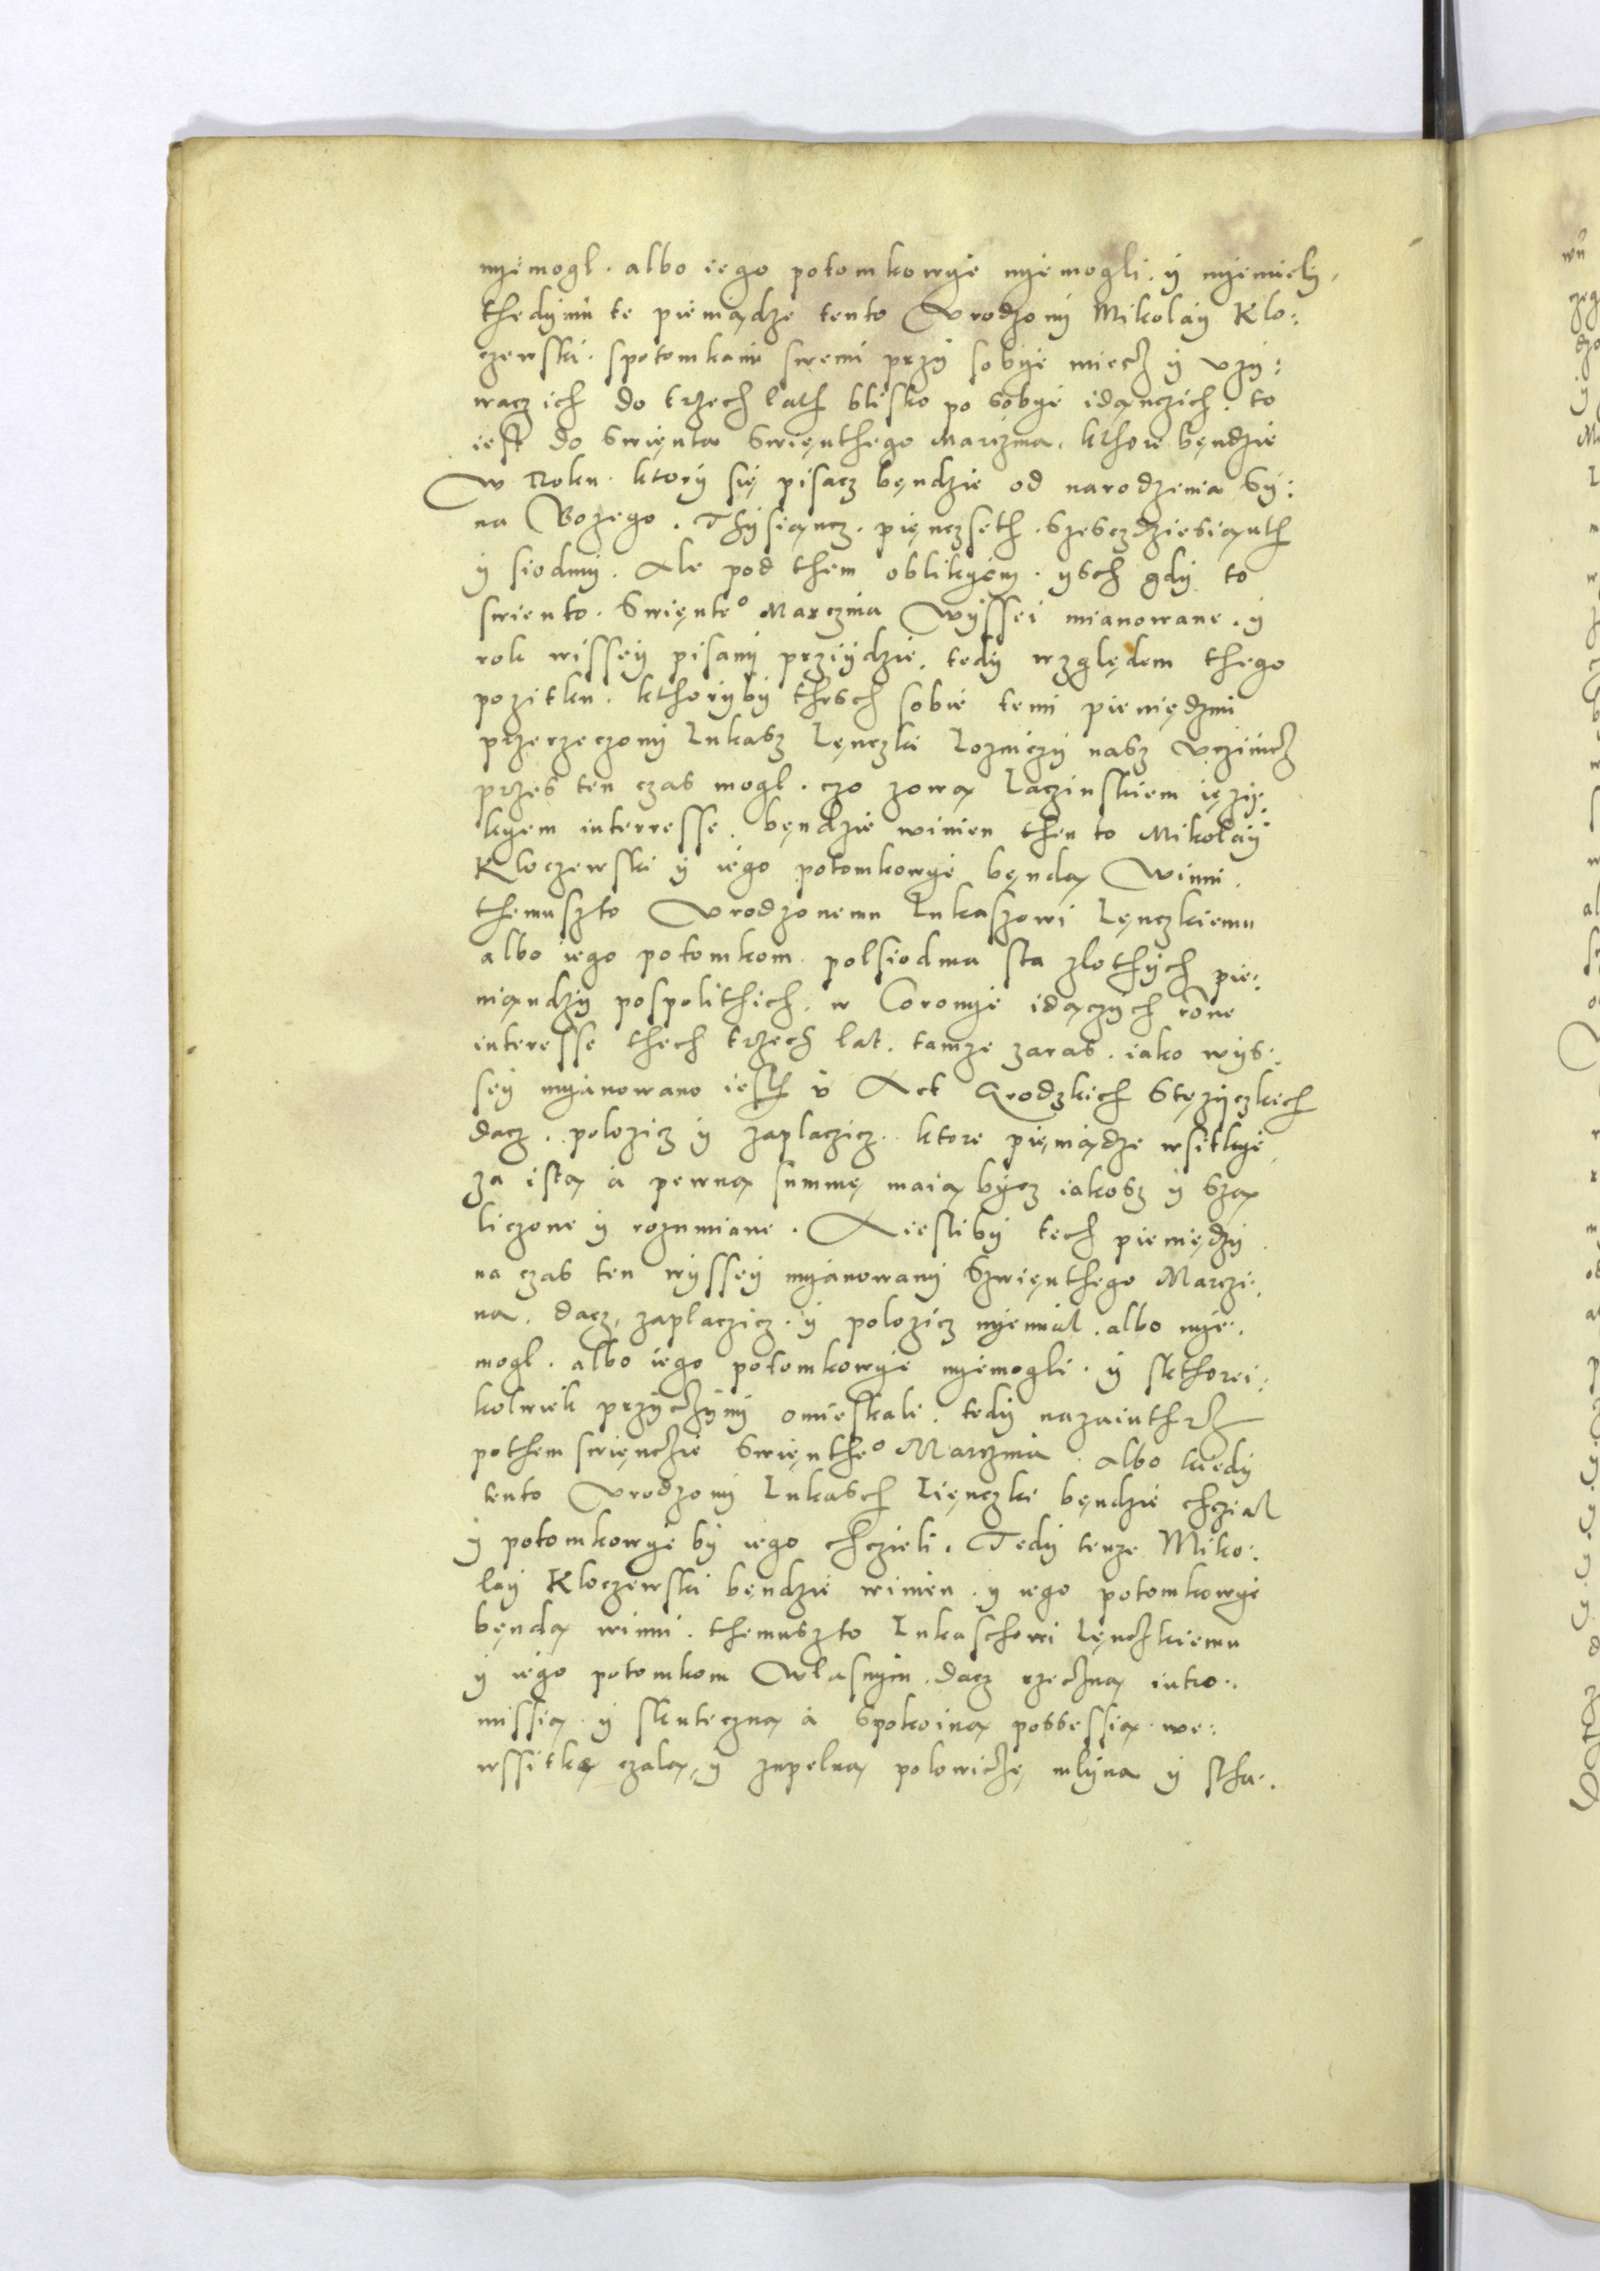 nyemogl . albo iego potomkowye nyemogli . ÿ nyemieli,
thedÿmu te pieniądze tento Vrodzonÿ Mikolaÿ Klo:
czewski . spotomkami swemi przÿ sobye miecz ÿ vzÿ:
wacz ich do trzech lath blisko po sobye idączich . to
iest do Swięnta Swięnthego Marczina . kthore będzie
W Roku . ktorÿ się pisacz będzie od narodzenia Sÿ:
na Bozego . Thÿsiącz . pięnczseth . szesczdziesiąth
ÿ siodmÿ . Ale pod them oblikyem . ysch gdÿ to
swiento . Swięnteo Marczina Wÿssei mianowane . ÿ
rok wisseÿ pisanÿ prziÿdzie . tedÿ względem thego
pozitku . kthorÿbÿ thesch sobie temi pieniędzmi
przerzeczonÿ Lukasz Lęnczki Lozniczÿ nasz vczinicz
przes ten czas mogl . czo zową Laczinskiem ięzy:
kyem interresse . będzie winien then to Mikolaÿ
Kloczewski ÿ iego potomkowye będą Winni .
themuszto Vrodzonemu Lukaszowi Lęnczkiemu
albo iego potomkom . polsiodma sta zlothÿch pie:
niędzÿ pospolithich . w Coronye idączÿch
interesse thech trzech lat . tamze zaras . iako wÿs:
seÿ myanowano iesth v Act Grodzkich Stęzÿczkich
dacz . polozicz ÿ zaplaczicz . ktore pieniądze wsitkye
za istą a pewną summę maią bÿcz iakosz ÿ szą
liczone ÿ rozumiane . A iestlibÿ tech pieniędzÿ
na czas ten wÿsseÿ myanowanÿ Szwięnthego Marczi:
na . dacz, zaplaczicz . ÿ polozicz nyemial . albo nye:
mogl . albo iego potomkowye nyemogli . ÿ skthorei:
kolwiek przÿczÿnÿ omieskali . tedÿ nazaiuthrz
pothem swięnczie Swięntheo Marczina . Albo kiedÿ
tento Vrodzonÿ Lukasch Lięnczki będzie chczial
ÿ potomkowye bÿ iego chczieli . Tedÿ tenze Miko:
laÿ Kloczewski będzie winien . ÿ iego potomkowye
będą winni . themuszto Lukaschowi Lęnczkiemu
ÿ iego potomkom Wlasnÿm . dacz rzeczną intro:
missią . ÿ skuteczną a spokoiną possessią . we:
wssitkę czalą, ÿ zupelną polowiczę mlÿna ÿ stha: